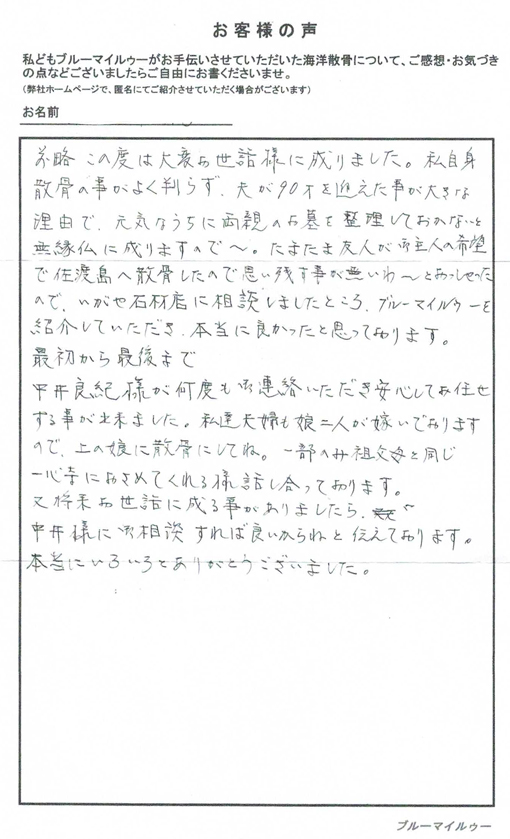 お客様の声
私どもブルーマイルゥーがお手伝いさせていただいた海洋散骨について、ご感想・お気づき
の点などございましたらご自由にお書きくださいませ。
(弊社ホームページで、匿名にてご紹介させていただく場合がございます)
お名前
前略 この度は大変お世話様に成りました。私自身
散骨の事がよく判らず、夫が90才を迎えた事が大きな
理由で、元気なうちに両親のお墓を整理しておかないと
無縁仏に成りますので〜。たまたま友人が御主人の希望
で佐渡島へ散骨したので思い残す事が無いわ〜とおっしゃった
ので、いがや石材店に相談しましたところ、ブルーマイルゥーを
紹介していただき、本当に良かったと思っております。
最初から最後まで
中井良紀様が何度も御連絡いただき安心してお任せ
する事が出来ました。私達夫婦も娘二人が嫁いでおります
ので、上の娘に散骨にしてね。一部のみ祖父母と同じ
一心寺におさめてくれる様話し合っております。
又将来お世話に成る事がありましたら、
中井様に御相談すれば良いからねと伝えております。
本当にいろいろとありがとうございました。
ブルーマイルゥー